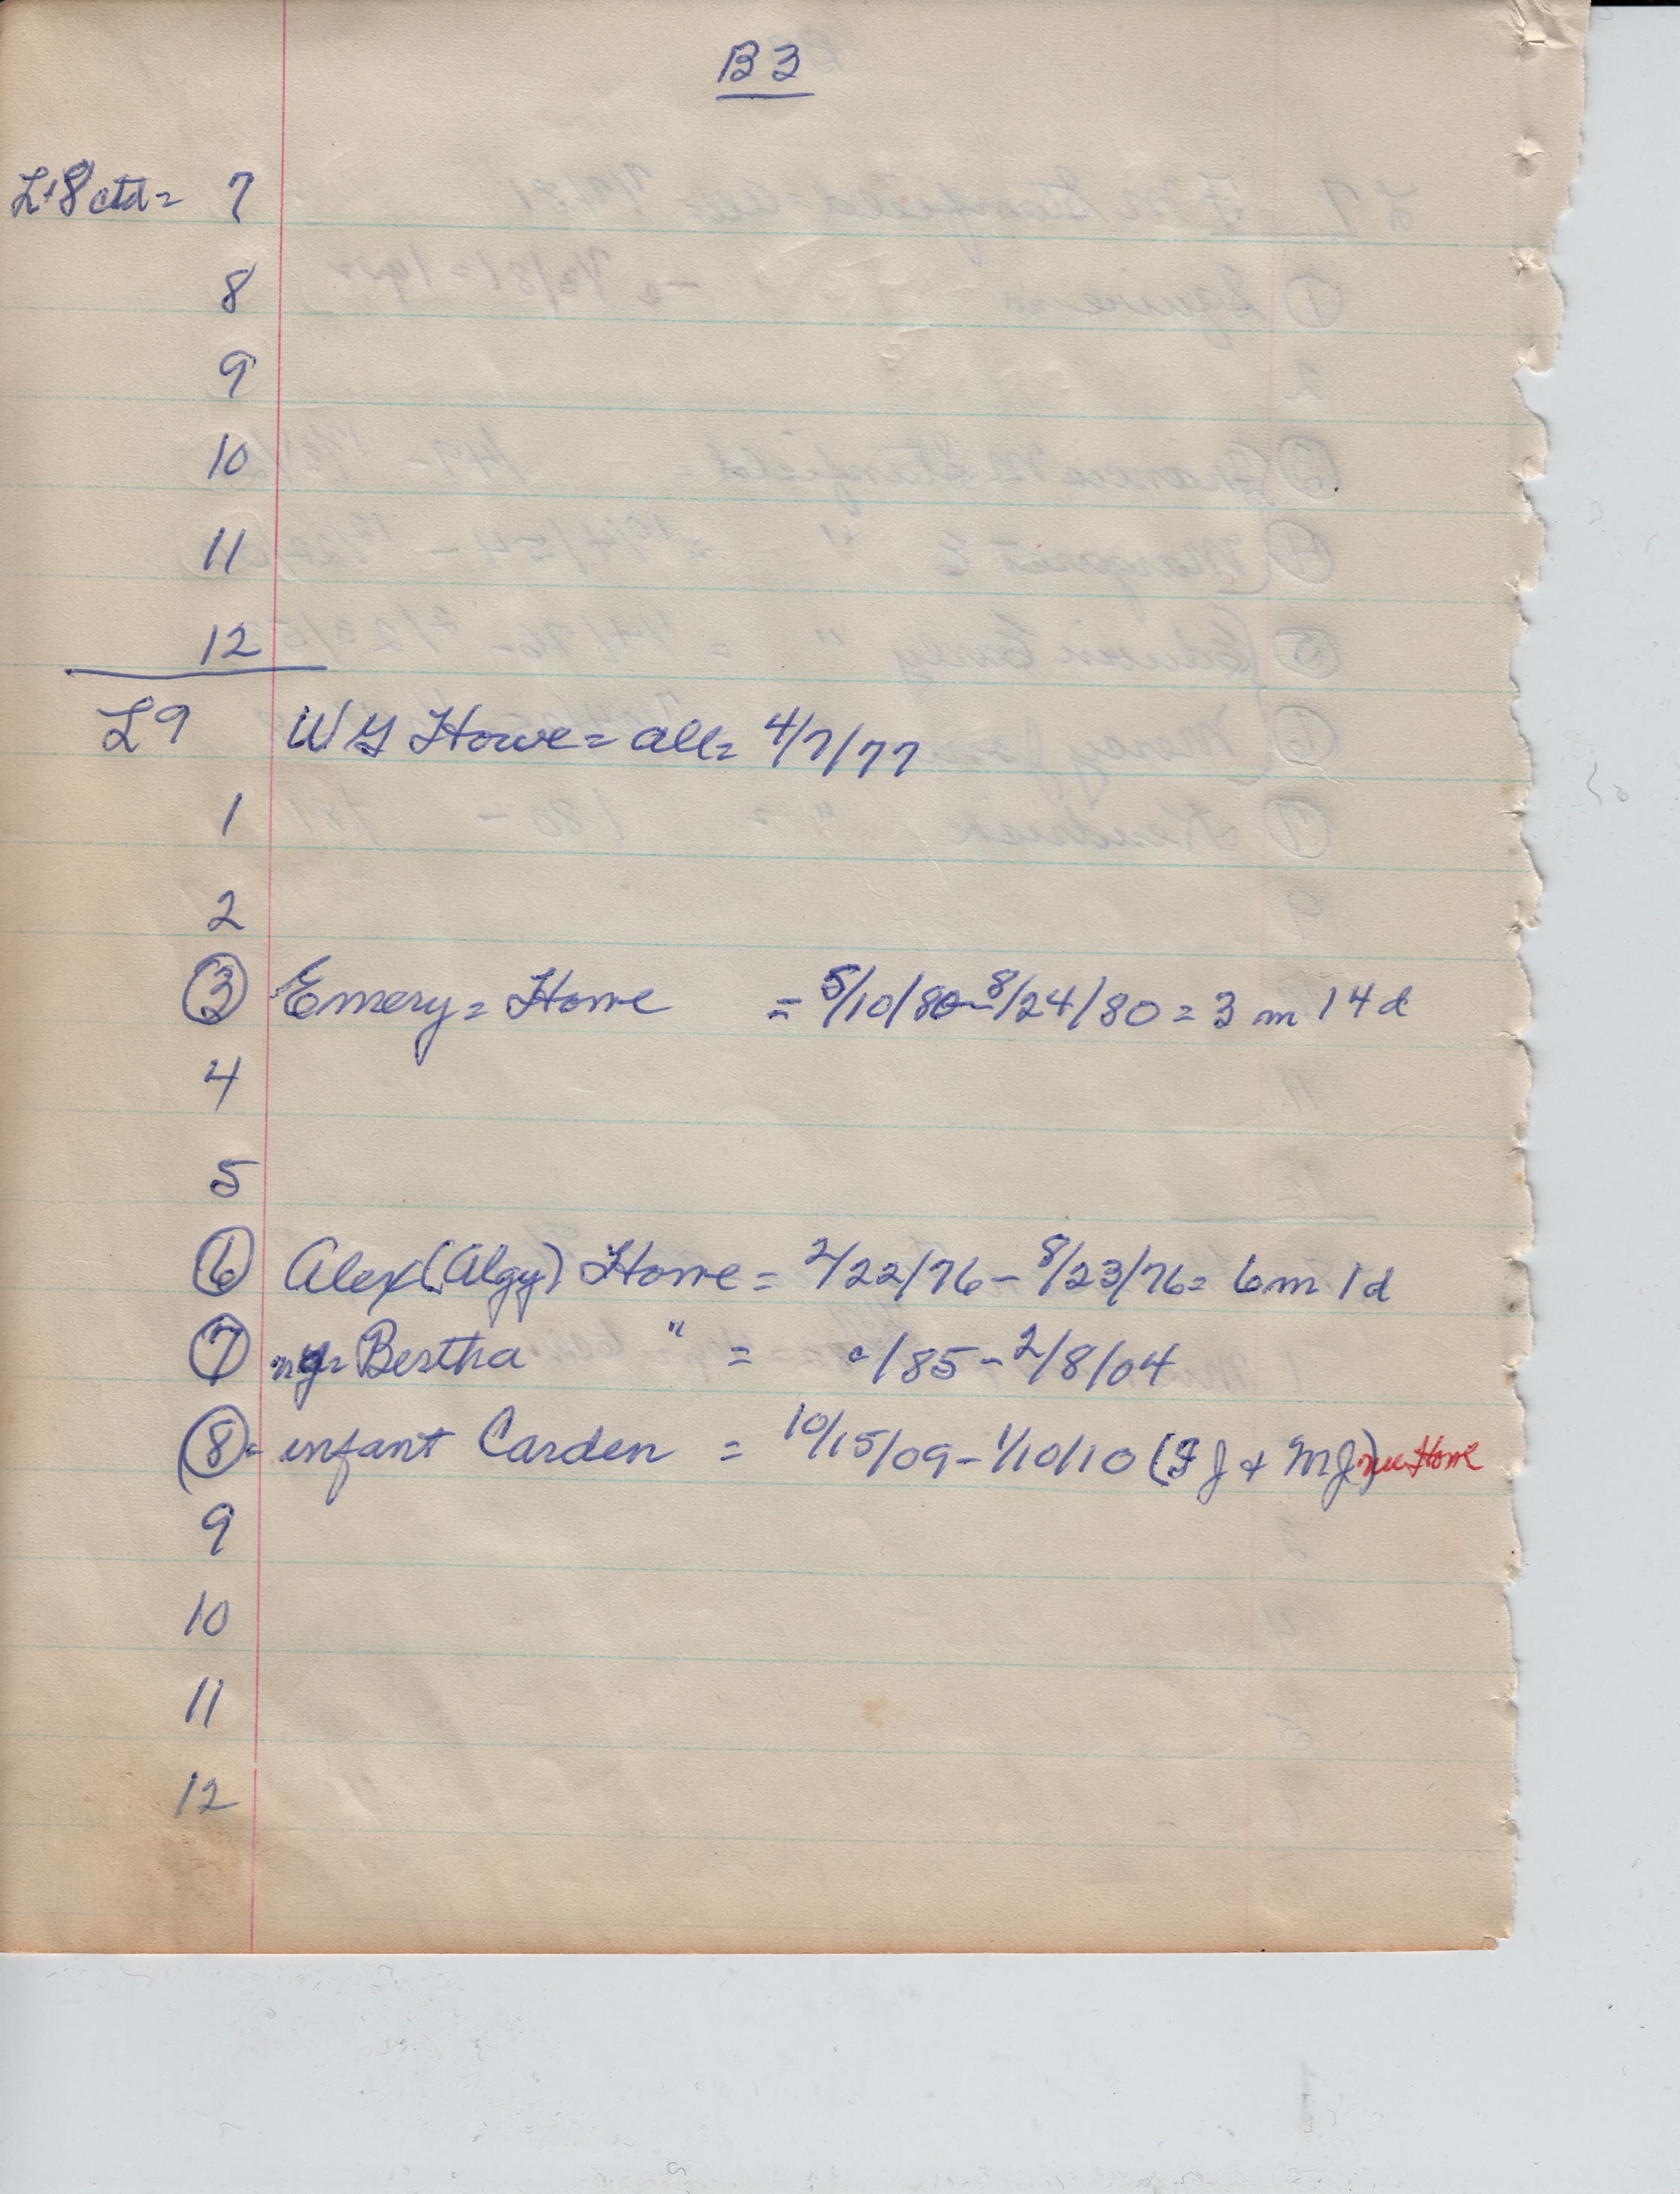 B3
L+8 ctd = 7
8
9
10
11
12
L9 W G Howe = all = 4/7/77
1
2
3 Emery = Howe = 5/10/80 - 8/24/80 = 3 m 14 d
4
5
6 Alex (Algy) Howe = 2/22/76 - 8/23/76 = 6 m 1 d
7 Bertha " = c/85 - 2/8/04
8 = infant Carden = 10/15/09 - 1/10/10 (F J + M J) nee Howe
9
10
11
12